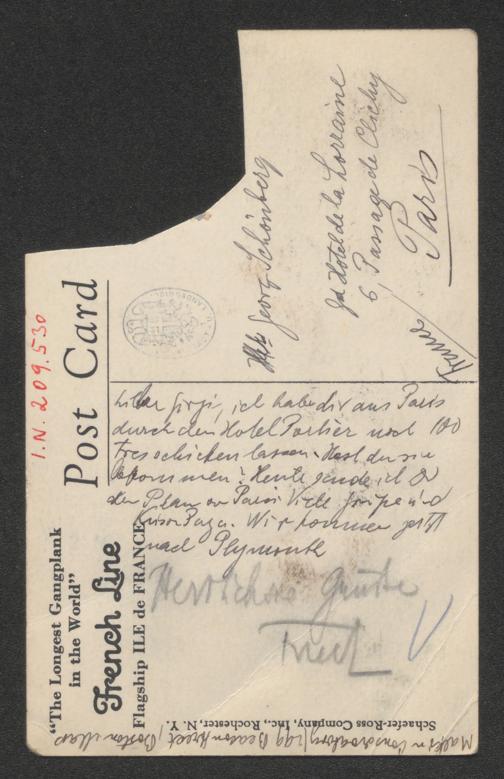 I.N. 209.530
Post Card
"The Longest Gangplank
in the World"
French Line
Flagship ILE de FRANCE
Georg Schönberg
Hotel de la Lorraine
6, Passage de Clichy
Paris
France
ich habe dir aus Paris
durch den Hotel Portier noch 100
frcs schicken lassen. Hast du sie
bekommen? Heute sende ich
den Plan von Paris. Viele Grüsse und
Wir kommen jetzt
nach Plymouth
Herzlichste Grüsse
Schaefer-Ross Company, Inc., Rochester, N. Y.
Beacon Street, Boston Mass